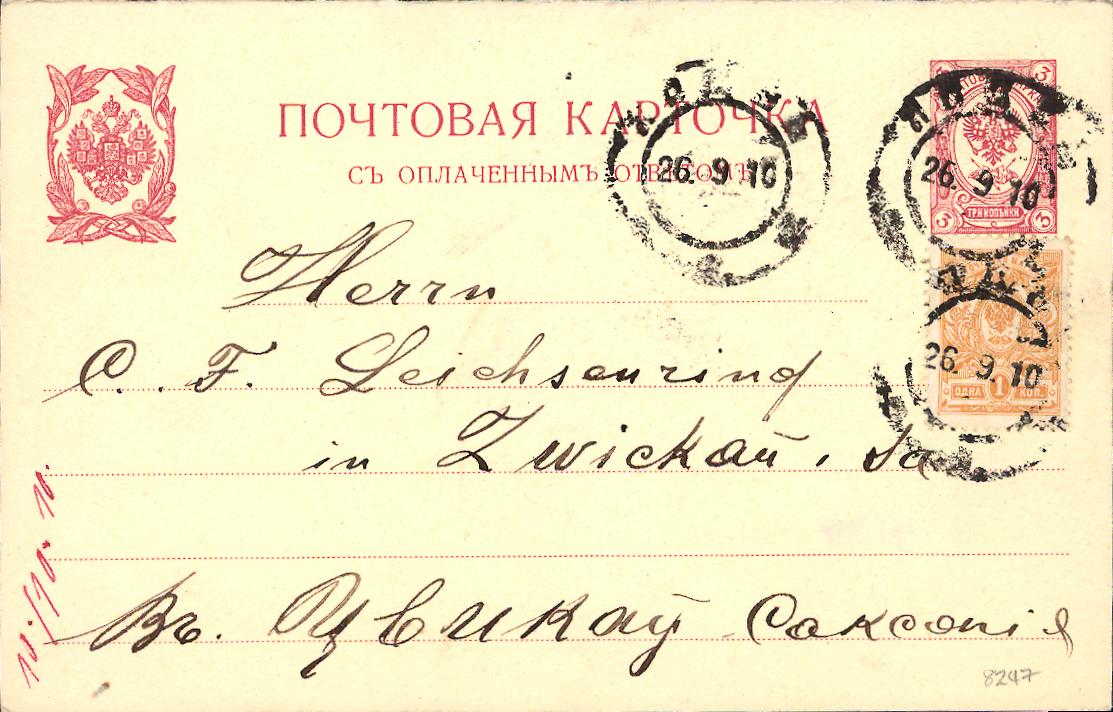 ПОЧТОВАЯ КАРТОЧКА
СЪ ОПЛАЧЕННЫМЪ ОТВѢТОМЪ
3 3
3 ТРИ КОПѢЙКИ 3
26. 9 10
26. 9 10
26. 9. 10
ОДНА 1 КОП.
Herrn
C. F. Leichsenring
in Zwickau, Sa
Въ Цвикау
10/10. 10.
8247